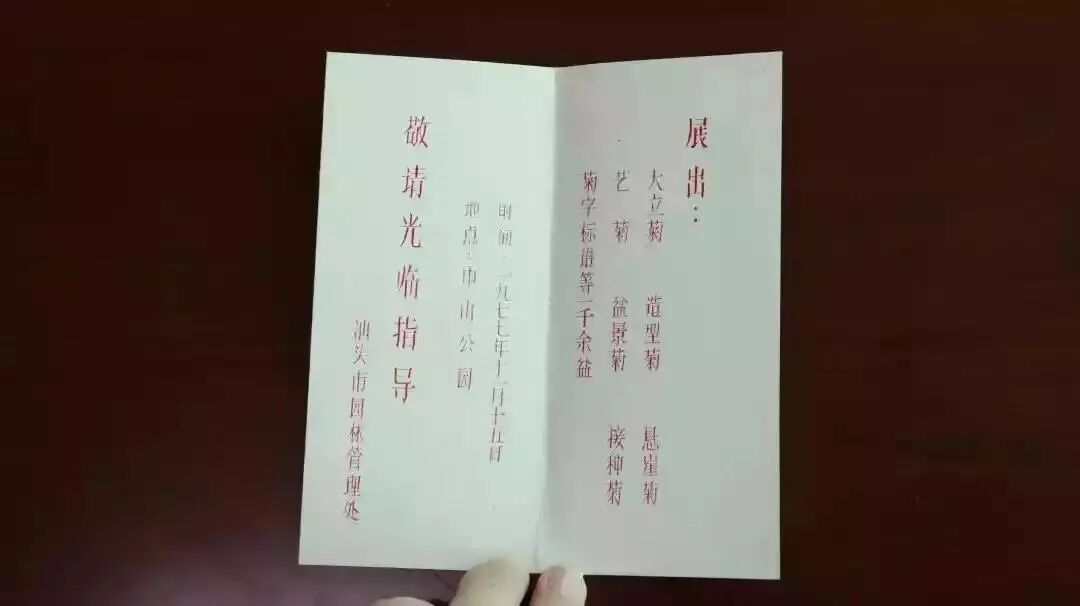 展出：
大立菊　造型菊　悬崖菊
艺菊　盆景菊　接种菊
菊字标语等一千余盆
时间：一九七七年十一月十五日
地点：中山公园
敬请光临指导
汕头市园林管理处